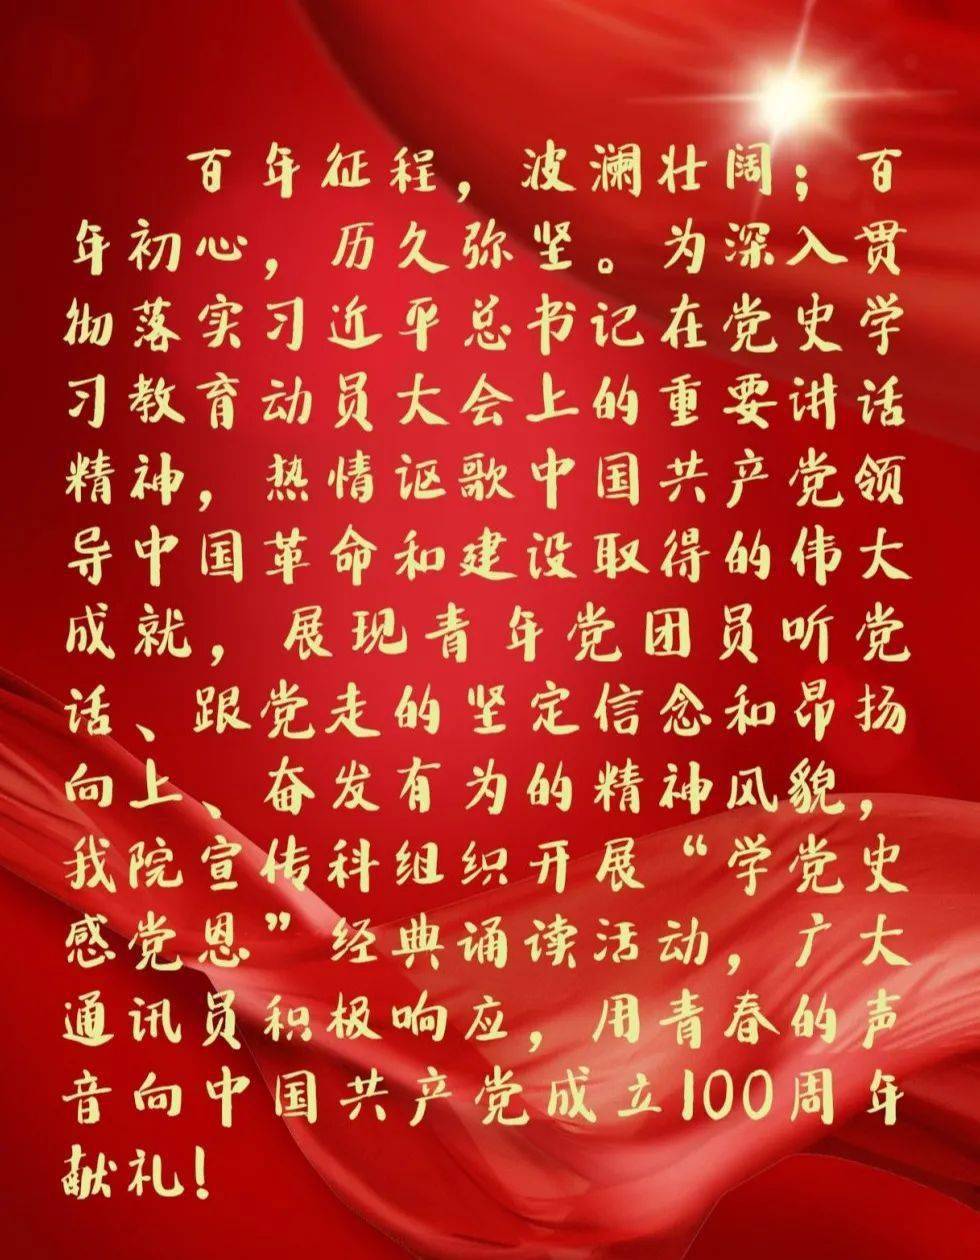 百年征程，波澜壮阔；百
年初心，历久弥坚。为深入贯
彻落实习近平总书记在党史学
习教育动员大会上的重要讲话
精神，热情讴歌中国共产党领
导中国革命和建设取得的伟大
成就，展现青年党团员听党
话、跟党走的坚定信念和昂扬
向上、奋发有为的精神风貌，
我院宣传科组织开展“学党史
感党恩”经典诵读活动，广大
通讯员积极响应，用青春的声
音向中国共产党成立100周年
献礼！